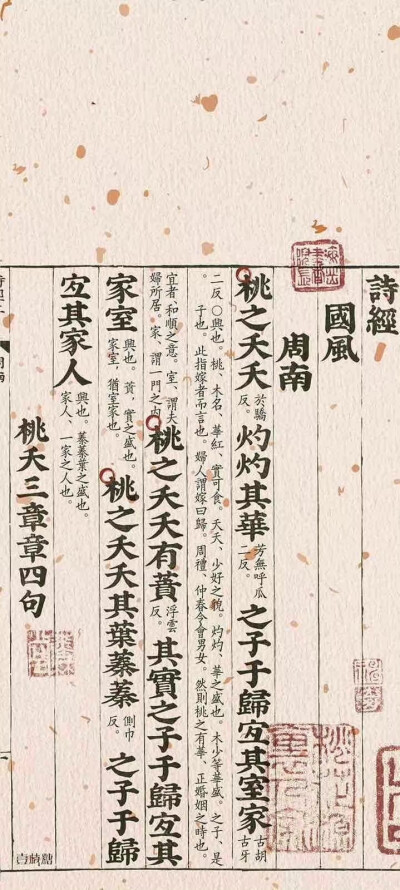 詩經
國風
周南
桃之夭夭於驕反。灼灼其華芳無呼瓜二反。之子于歸宐其室家古胡古牙
二反。○興也。桃、木名、華紅、實可食。夭夭、少好之貌。灼灼、華之盛也。木少等華盛。之子、是
子也。此指嫁者而言也。婦人謂嫁曰歸。周禮、仲春令會男女。然則桃之有華、正婚姻之時也。
宜者、和順之意。室、謂夫婦所居。家、謂一門之內桃之夭夭有蕡浮雲反。其實之子于歸宐其
家室興也。蕡、實之盛也。家室、猶室家也。桃之夭夭其葉蓁蓁側巾反。之子于歸
宐其家人興也。蓁蓁葉之盛也。家人、一家之人也。
桃夭三章章四句
白崎糖